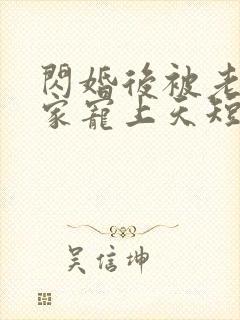 閃婚後被老
家寵上天短
吳信坤